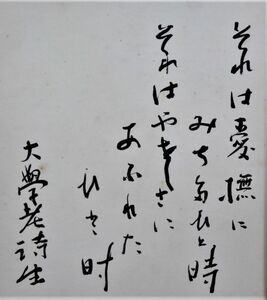 それは愛撫に
みちたひと時
それはやさしさに
あふれた
ひと時
大學老詩生